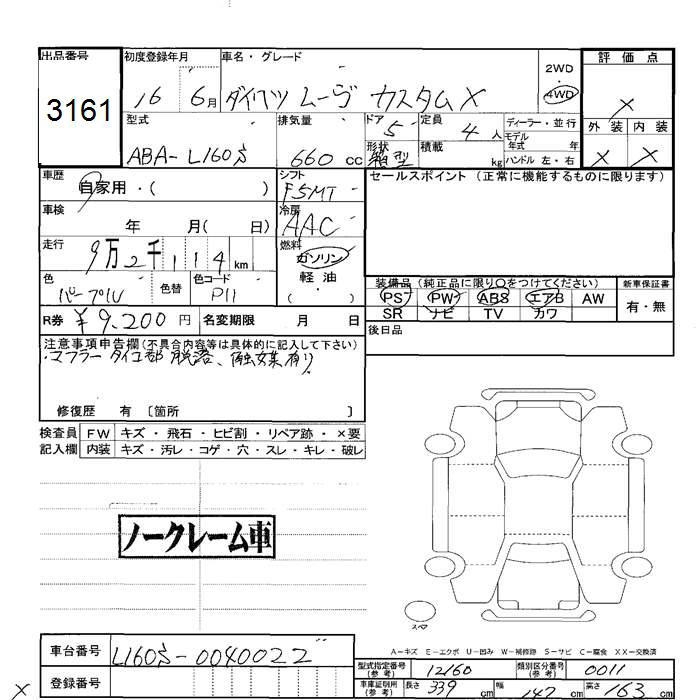 出品番号 初度登録年月 車名・グレード 2WD 評価点
3161 16 6月 ダイハツ ムーヴ カスタムX 4WD ×
型式 排気量 ドア 5 定員 4人 ディーラー・並行 外装 内装
ABA-L160S 660cc 形状 箱型 積載 kg モデル年式 年 × ×
ハンドル 左・右
車歴 シフト セールスポイント (正常に機能するものに限ります)
自家用・( ) F5MT
車検 冷房
年 月( 日) AAC
走行 燃料
9万2千114km ガソリン
色 色替 色コード 軽油 装備品(純正品に限り○をつけてください) 新車保証書
パープル P11 ( ) PS PW ABS エアB AW 有・無
SR ナビ TV カワ
R券 ¥9,200円 名変期限 月 日 後日品
注意事項申告欄(不具合内容等は具体的に記入して下さい)
・マフラー タイコ部 脱落、触媒有り
修復歴 有 〔箇所 〕
検査員 FW キズ・飛石・ヒビ割・リペア跡・×要
記入欄 内装 キズ・汚レ・コゲ・穴・スレ・キレ・破レ
ノークレーム車
スペア
A-キズ E-エクボ U-凹み W-補修跡 S-サビ C-腐食 XX-交換済
車台番号 L160S-0040022
型式指定番号(参考) 12160 類別区分番号(参考) 0011
登録番号
車庫証明用(参考) 長さ 339cm 幅 147cm 高さ 163cm
×